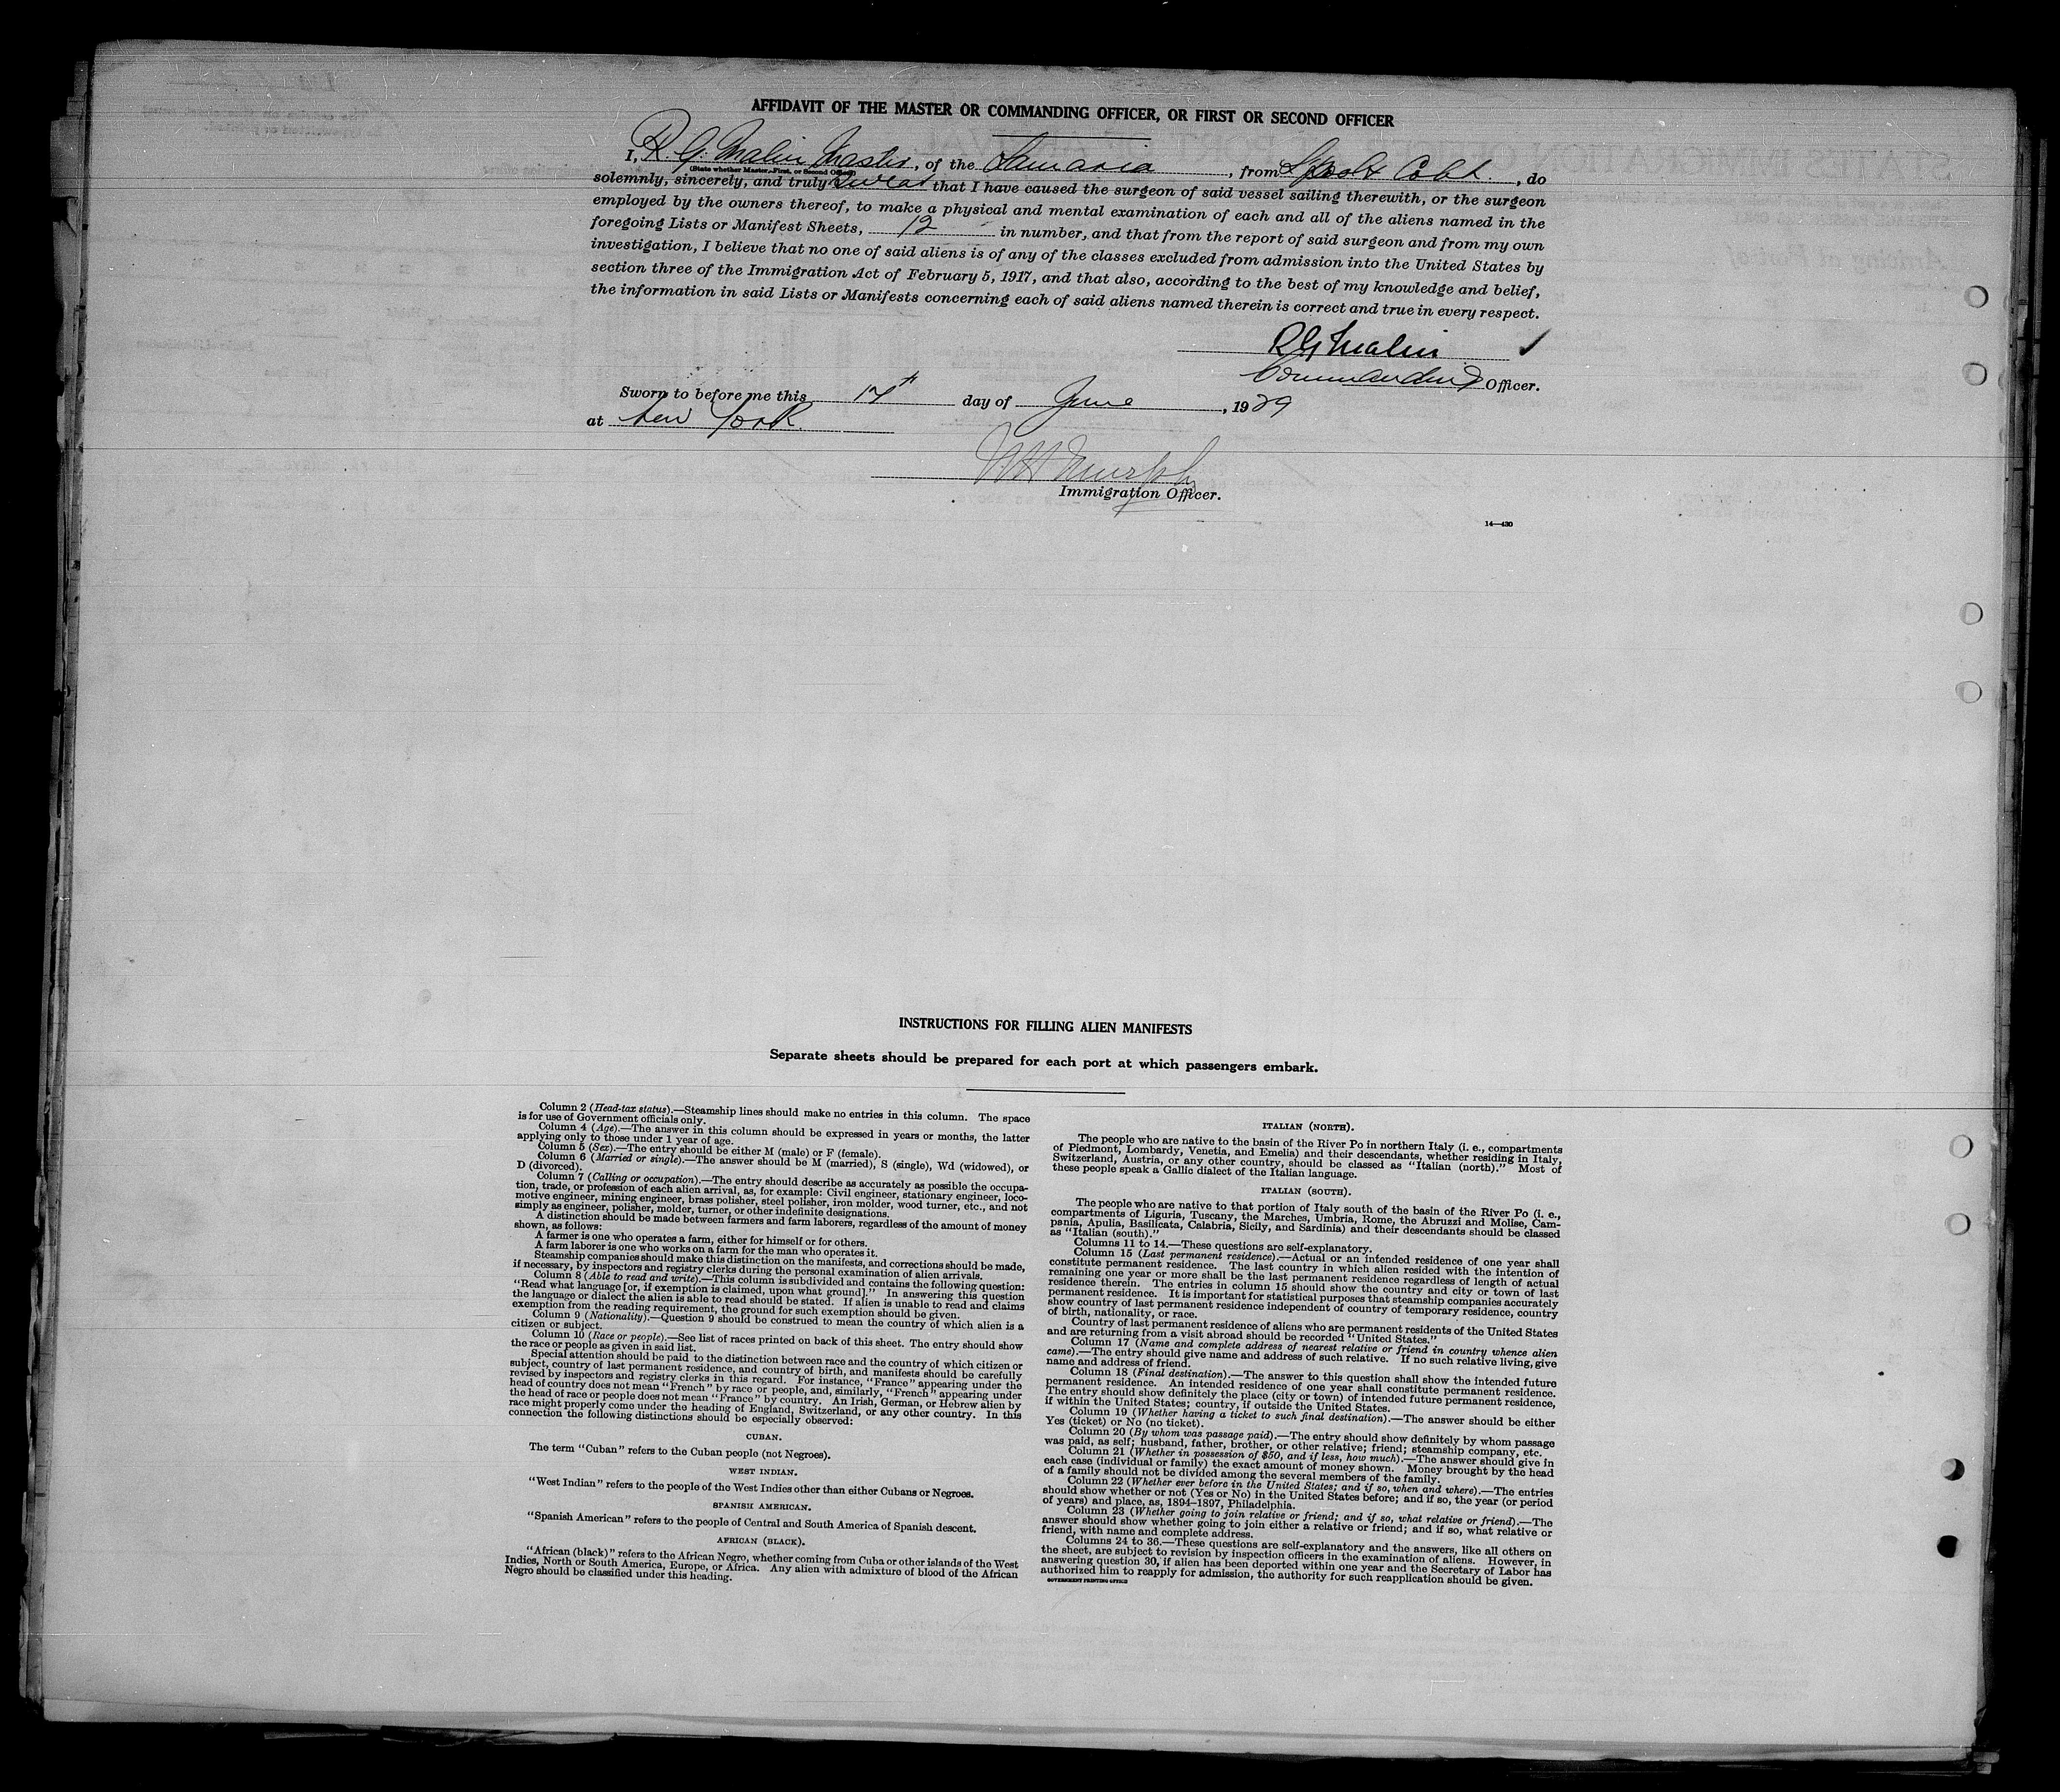 AFFIDAVIT OF THE MASTER OR COMMANDING OFFICER, OR FIRST OR SECOND OFFICER
I, R. G. Malin Master, of the Samaria, from L'pool & Cobh., do
(State whether Master, First, or Second Officer)
solemnly, sincerely, and truly swear that I have caused the surgeon of said vessel sailing therewith, or the surgeon
employed by the owners thereof, to make a physical and mental examination of each and all of the aliens named in the
foregoing Lists or Manifest Sheets, 12 in number, and that from the report of said surgeon and from my own
investigation, I believe that no one of said aliens is of any of the classes excluded from admission into the United States by
section three of the Immigration Act of February 5, 1917, and that also, according to the best of my knowledge and belief,
the information in said Lists or Manifests concerning each of said aliens named therein is correct and true in every respect.
RG Malin
Commanding Officer.
Sworn to before me this 17th day of June, 1929
at New York.
WH Murphy
Immigration Officer.
14—430
INSTRUCTIONS FOR FILLING ALIEN MANIFESTS
Separate sheets should be prepared for each port at which passengers embark.
Column 2 (Head-tax status).—Steamship lines should make no entries in this column. The space
is for use of Government officials only.
Column 4 (Age).—The answer in this column should be expressed in years or months, the latter
applying only to those under 1 year of age.
Column 5 (Sex).—The entry should be either M (male) or F (female).
Column 6 (Married or single).—The answer should be M (married), S (single), Wd (widowed), or
D (divorced).
Column 7 (Calling or occupation).—The entry should describe as accurately as possible the occupa-
tion, trade, or profession of each alien arrival, as, for example: Civil engineer, stationary engineer, loco-
motive engineer, mining engineer, brass polisher, steel polisher, iron molder, wood turner, etc., and not
simply as engineer, polisher, molder, turner, or other indefinite designations.
A distinction should be made between farmers and farm laborers, regardless of the amount of money
shown, as follows:
A farmer is one who operates a farm, either for himself or for others.
A farm laborer is one who works on a farm for the man who operates it.
Steamship companies should make this distinction on the manifests, and corrections should be made,
if necessary, by inspectors and registry clerks during the personal examination of alien arrivals.
Column 8 (Able to read and write).—This column is subdivided and contains the following question:
"Read what language [or, if exemption is claimed, upon what ground]." In answering this question
the language or dialect the alien is able to read should be stated. If alien is unable to read and claims
exemption from the reading requirement, the ground for such exemption should be given.
Column 9 (Nationality).—Question 9 should be construed to mean the country of which alien is a
citizen or subject.
Column 10 (Race or people).—See list of races printed on back of this sheet. The entry should show
the race or people as given in said list.
Special attention should be paid to the distinction between race and the country of which citizen or
subject, country of last permanent residence, and country of birth, and manifests should be carefully
revised by inspectors and registry clerks in this regard. For instance, "France" appearing under the
head of country does not mean "French" by race or people, and, similarly, "French" appearing under
the head of race or people does not mean "France" by country. An Irish, German, or Hebrew alien by
race might properly come under the heading of England, Switzerland, or any other country. In this
connection the following distinctions should be especially observed:
CUBAN.
The term "Cuban" refers to the Cuban people (not Negroes).
WEST INDIAN.
"West Indian" refers to the people of the West Indies other than either Cubans or Negroes.
SPANISH AMERICAN.
"Spanish American" refers to the people of Central and South America of Spanish descent.
AFRICAN (BLACK).
"African (black)" refers to the African Negro, whether coming from Cuba or other islands of the West
Indies, North or South America, Europe, or Africa. Any alien with admixture of blood of the African
Negro should be classified under this heading.
ITALIAN (NORTH).
The people who are native to the basin of the River Po in northern Italy (i. e., compartments
of Piedmont, Lombardy, Venetia, and Emelia) and their descendants, whether residing in Italy,
Switzerland, Austria, or any other country, should be classed as "Italian (north)." Most of
these people speak a Gallic dialect of the Italian language.
ITALIAN (SOUTH).
The people who are native to that portion of Italy south of the basin of the River Po (i. e.,
compartments of Liguria, Tuscany, the Marches, Umbria, Rome, the Abruzzi and Molise, Cam-
pania, Apulia, Basilicata, Calabria, Sicily, and Sardinia) and their descendants should be classed
as "Italian (south)."
Columns 11 to 14.—These questions are self-explanatory.
Column 15 (Last permanent residence).—Actual or an intended residence of one year shall
constitute permanent residence. The last country in which alien resided with the intention of
remaining one year or more shall be the last permanent residence regardless of length of actual
residence therein. The entries in column 15 should show the country and city or town of last
permanent residence. It is important for statistical purposes that steamship companies accurately
show country of last permanent residence independent of country of temporary residence, country
of birth, nationality, or race.
Country of last permanent residence of aliens who are permanent residents of the United States
and are returning from a visit abroad should be recorded "United States."
Column 17 (Name and complete address of nearest relative or friend in country whence alien
came).—The entry should give name and address of such relative. If no such relative living, give
name and address of friend.
Column 18 (Final destination).—The answer to this question shall show the intended future
permanent residence. An intended residence of one year shall constitute permanent residence.
The entry should show definitely the place (city or town) of intended future permanent residence,
if within the United States; country, if outside the United States.
Column 19 (Whether having a ticket to such final destination).—The answer should be either
Yes (ticket) or No (no ticket).
Column 20 (By whom was passage paid).—The entry should show definitely by whom passage
was paid, as self; husband, father, brother, or other relative; friend; steamship company, etc.
Column 21 (Whether in possession of $50, and if less, how much).—The answer should give in
each case (individual or family) the exact amount of money shown. Money brought by the head
of a family should not be divided among the several members of the family.
Column 22 (Whether ever before in the United States; and if so, when and where).—The entries
should show whether or not (Yes or No) in the United States before; and if so, the year (or period
of years) and place, as, 1894–1897, Philadelphia.
Column 23 (Whether going to join relative or friend; and if so, what relative or friend).—The
answer should show whether going to join either a relative or friend; and if so, what relative or
friend, with name and complete address.
Columns 24 to 36.—These questions are self-explanatory and the answers, like all others on
the sheet, are subject to revision by inspection officers in the examination of aliens. However, in
answering question 30, if alien has been deported within one year and the Secretary of Labor has
authorized him to reapply for admission, the authority for such reapplication should be given.
GOVERNMENT PRINTING OFFICE